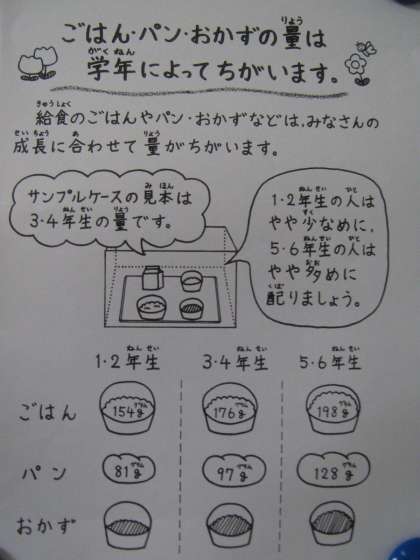 ごはん・パン・おかずの量は
学年によってちがいます。
給食のごはんやパン・おかずなどは、みなさんの
成長に合わせて量がちがいます。
サンプルケースの見本は
3・4年生の量です。
1・2年生の人は
やや少なめに、
5・6年生の人は
やや多めに
配りましょう。
1・2年生 3・4年生 5・6年生
ごはん 154g 176g 198g
パン 81g 97g 128g
おかず